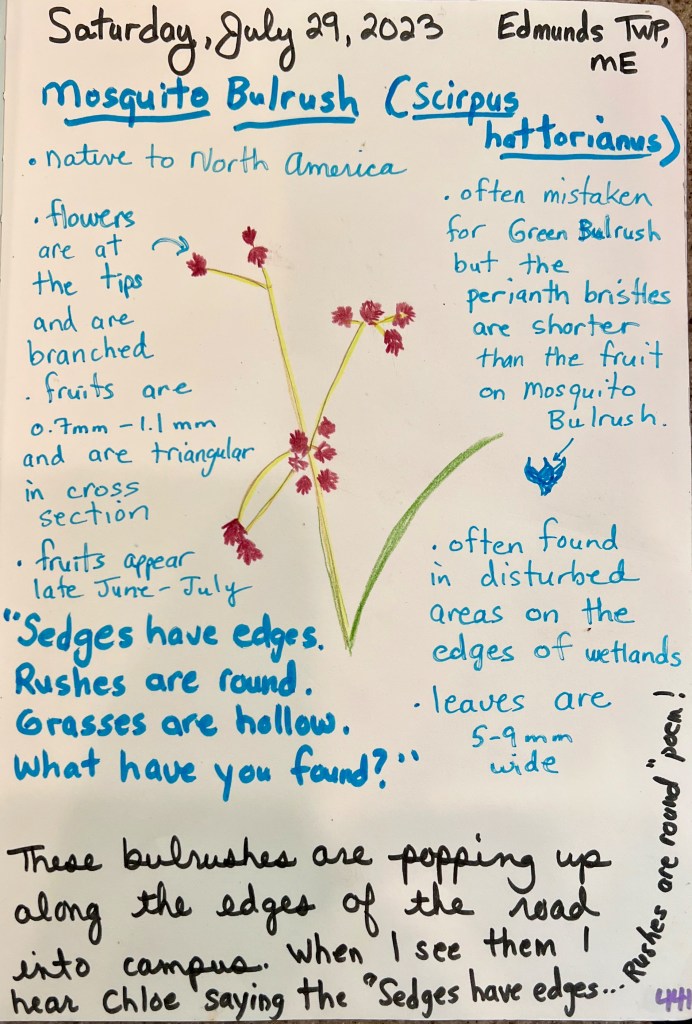 Saturday, July 29, 2023
Edmunds TWP,
ME
Mosquito Bulrush (Scirpus
hattorianus)
• native to North America
• flowers
are at
the tips
and are
branched
• fruits are
0.7mm - 1.1 mm
and are triangular
in cross
section
• fruits appear
late June - July
• often mistaken
for Green Bulrush
but the
perianth bristles
are shorter
than the fruit
on Mosquito
Bulrush.
• often found
in disturbed
areas on the
edges of wetlands
• leaves are
5-9 mm
wide
"Sedges have edges.
Rushes are round.
Grasses are hollow.
What have you found?"
These bulrushes are popping up
along the edges of the road
into campus. When I see them I
hear Chloe saying the "Sedges have edges...
Rushes are round" poem!
441